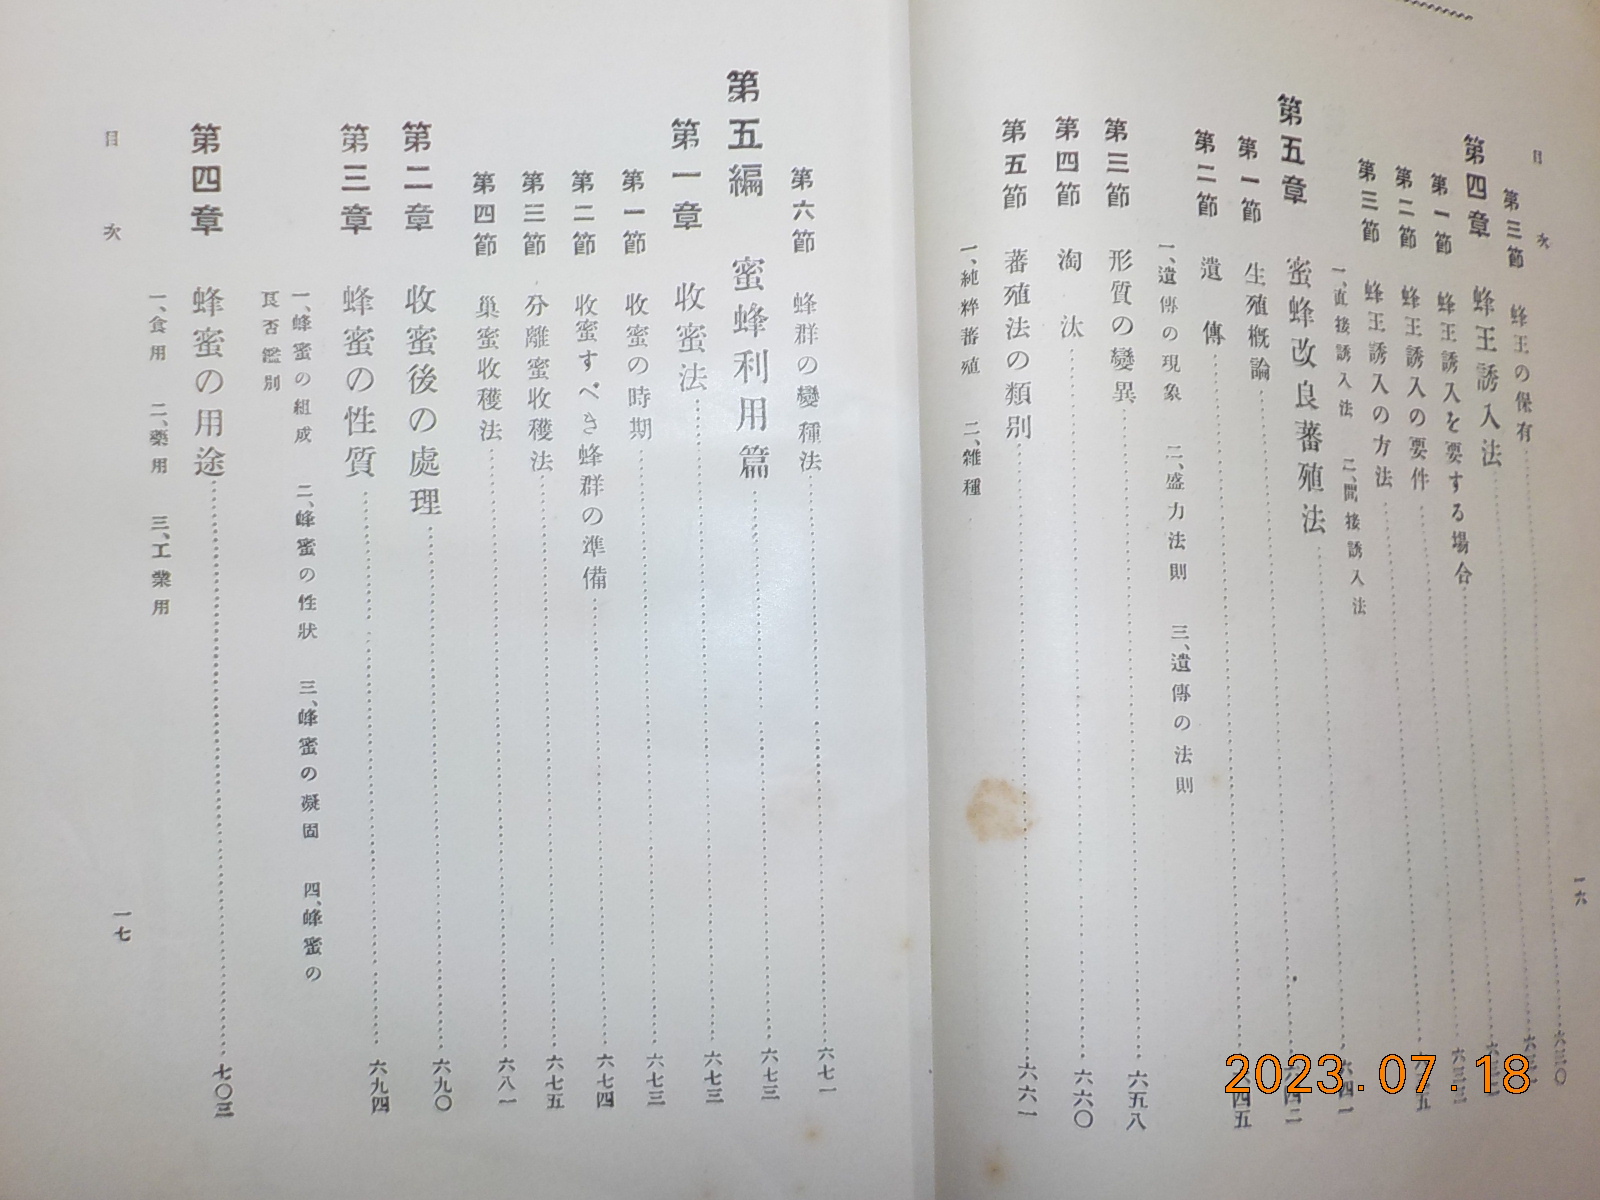 目次
一六
第三節 蜂王の保有 六三〇
第四章 蜂王誘入法
第一節 蜂王誘入を要する場合
第二節 蜂王誘入の要件
第三節 蜂王誘入の方法
一、直接誘入法 二、間接誘入法
第五章 蜜蜂改良蕃殖法 六四一
第一節 生殖概論 六四二
第二節 遺傳 六四五
一、遺傳の現象 二、盛力法則 三、遺傳の法則
第三節 形質の變異 六五八
第四節 淘汰 六六〇
第五節 蕃殖法の類別 六六一
一、純粹蕃殖 二、雜種
第六節 蜂群の變種法 六七一
第五編 蜜蜂利用篇 六七三
第一章 收蜜法 六七三
第一節 收蜜の時期 六七三
第二節 收蜜すべき蜂群の準備 六七四
第三節 分離蜜收穫法 六七五
第四節 巢蜜收穫法 六八一
第二章 收蜜後の處理 六九〇
第三章 蜂蜜の性質 六九四
一、蜂蜜の組成 二、蜂蜜の性狀 三、蜂蜜の凝固 四、蜂蜜の
良否鑑別
第四章 蜂蜜の用途 七〇三
一、食用 二、藥用 三、工業用
目次
一七
2023.07.18